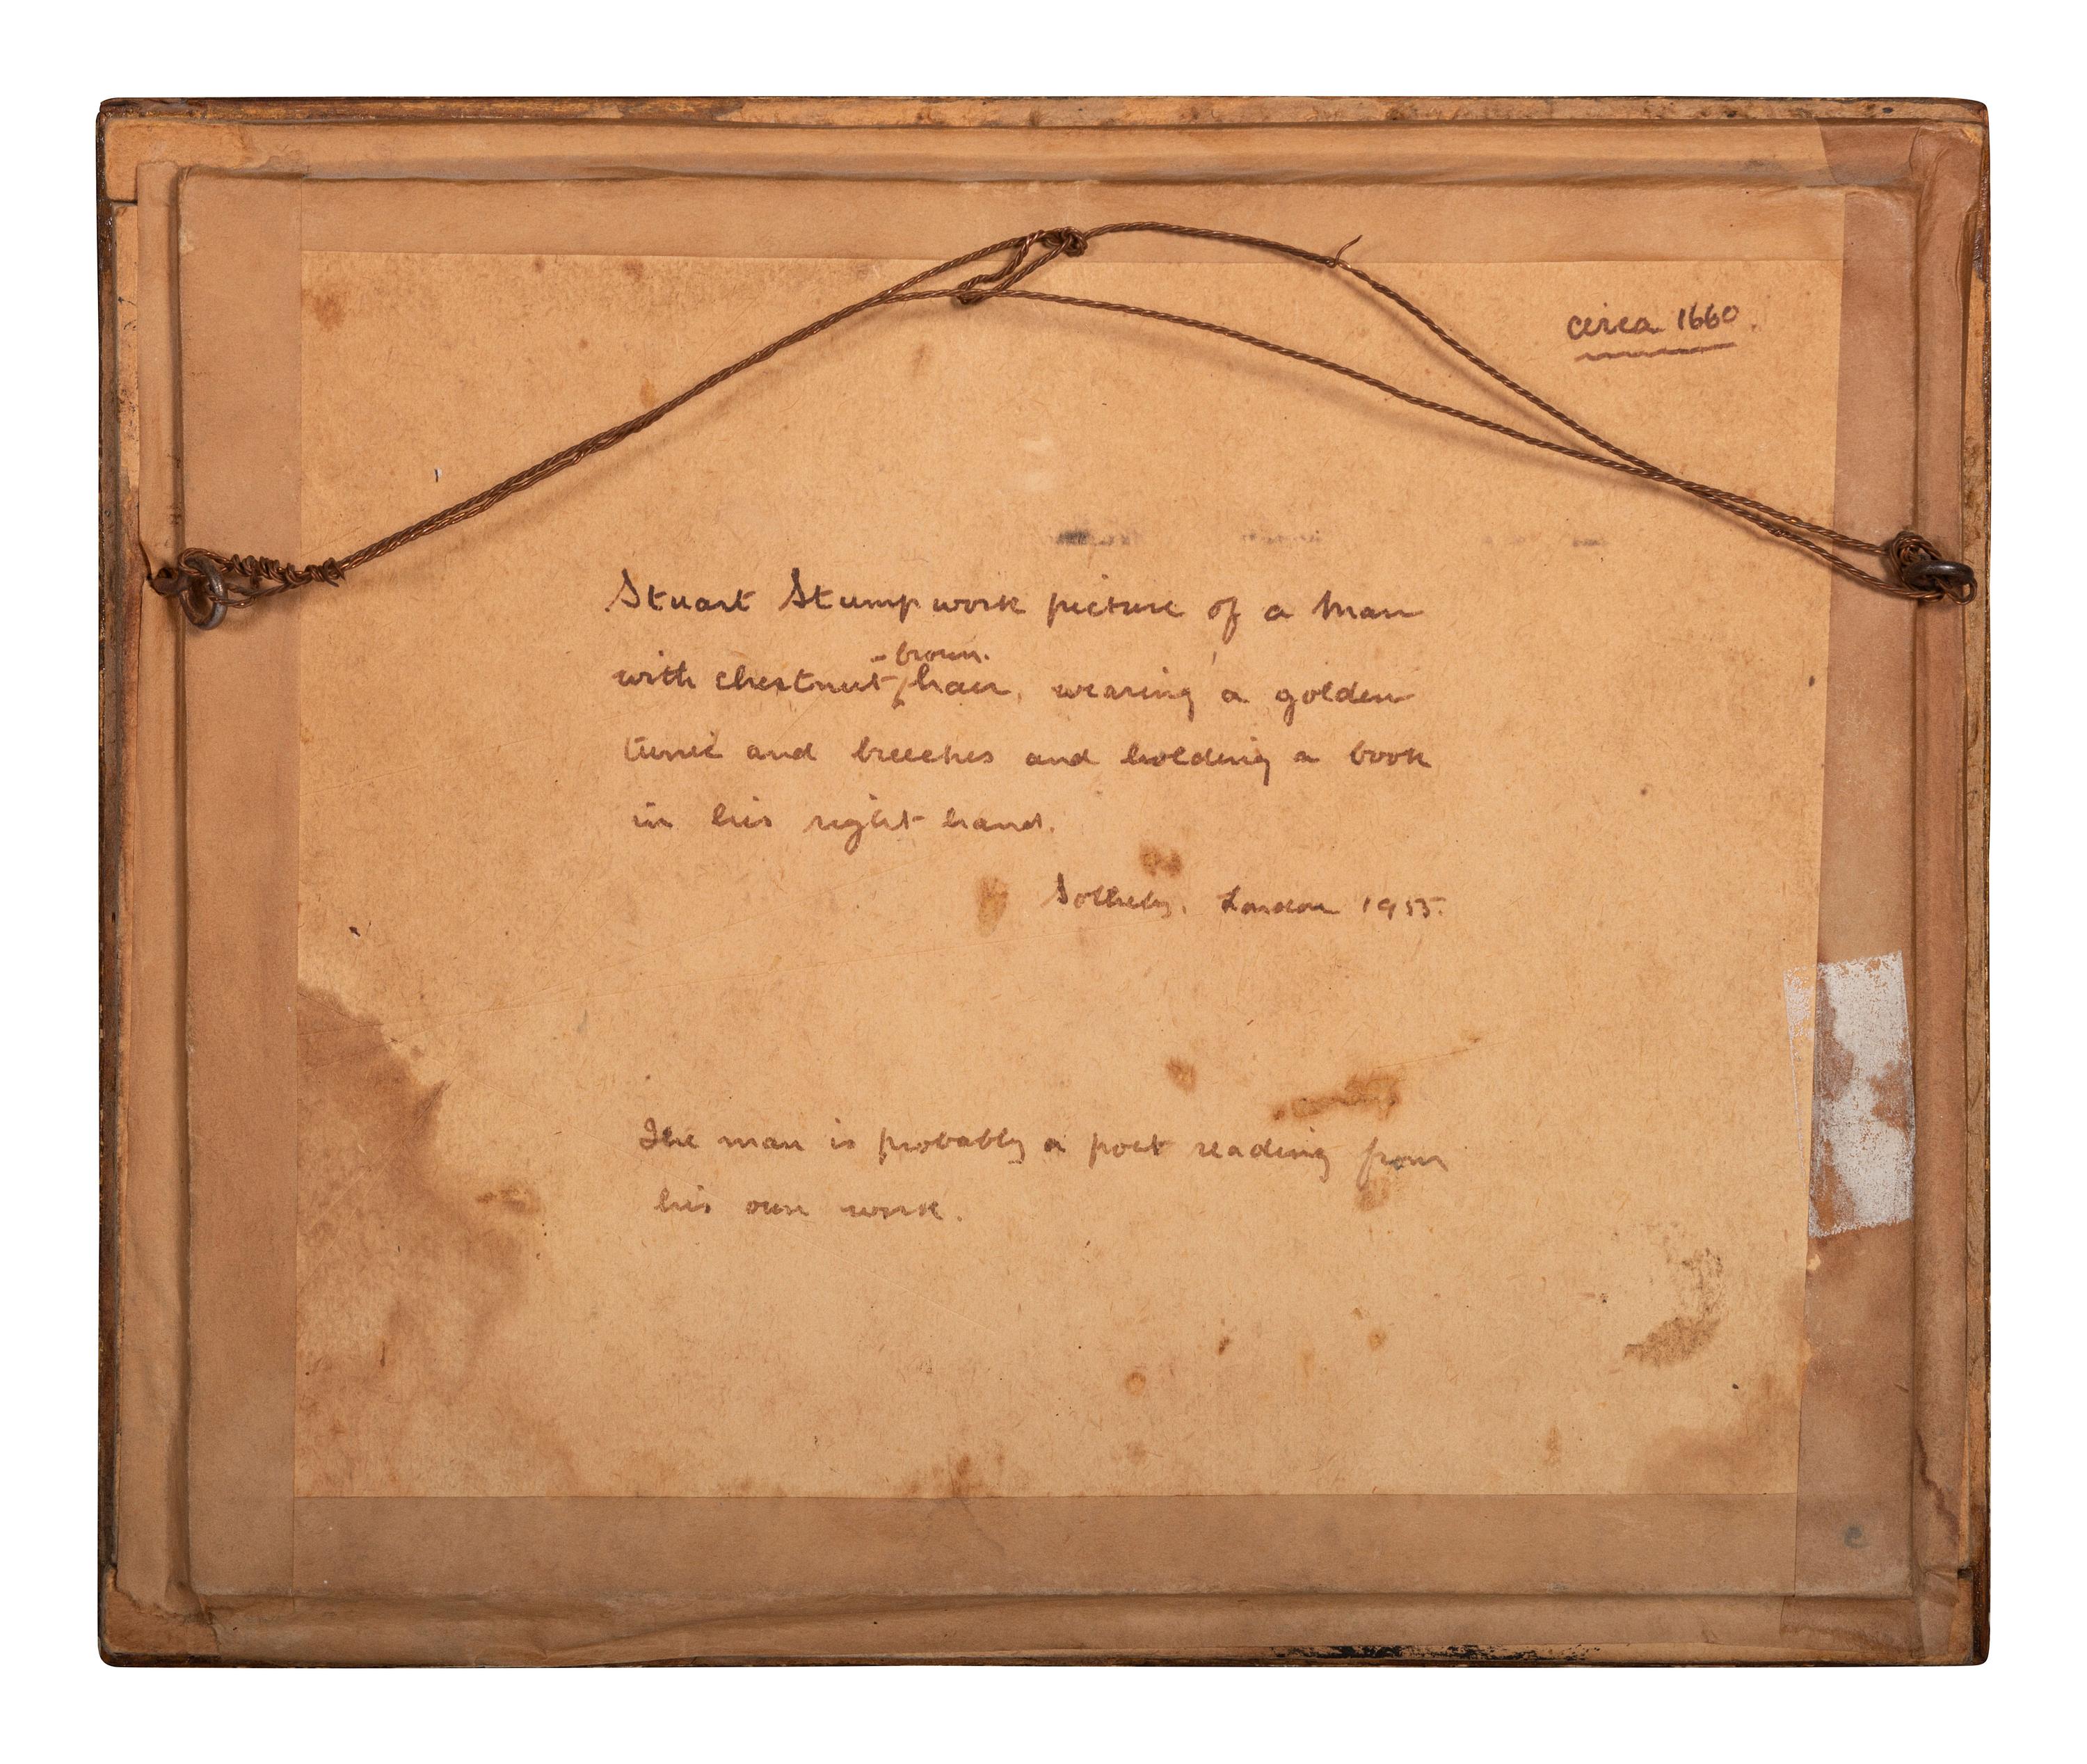 circa 1660.
Stuart Stumpwork picture of a Man
- brown.
with chestnut hair, wearing a golden
tunic and breeches and holding a book
in his right hand.
Sotheby, London 1955.
The man is probably a poet reading from
his own work.